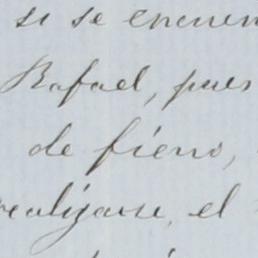 si se encuen
Rafael, pues
de fierro,
realizarse, el